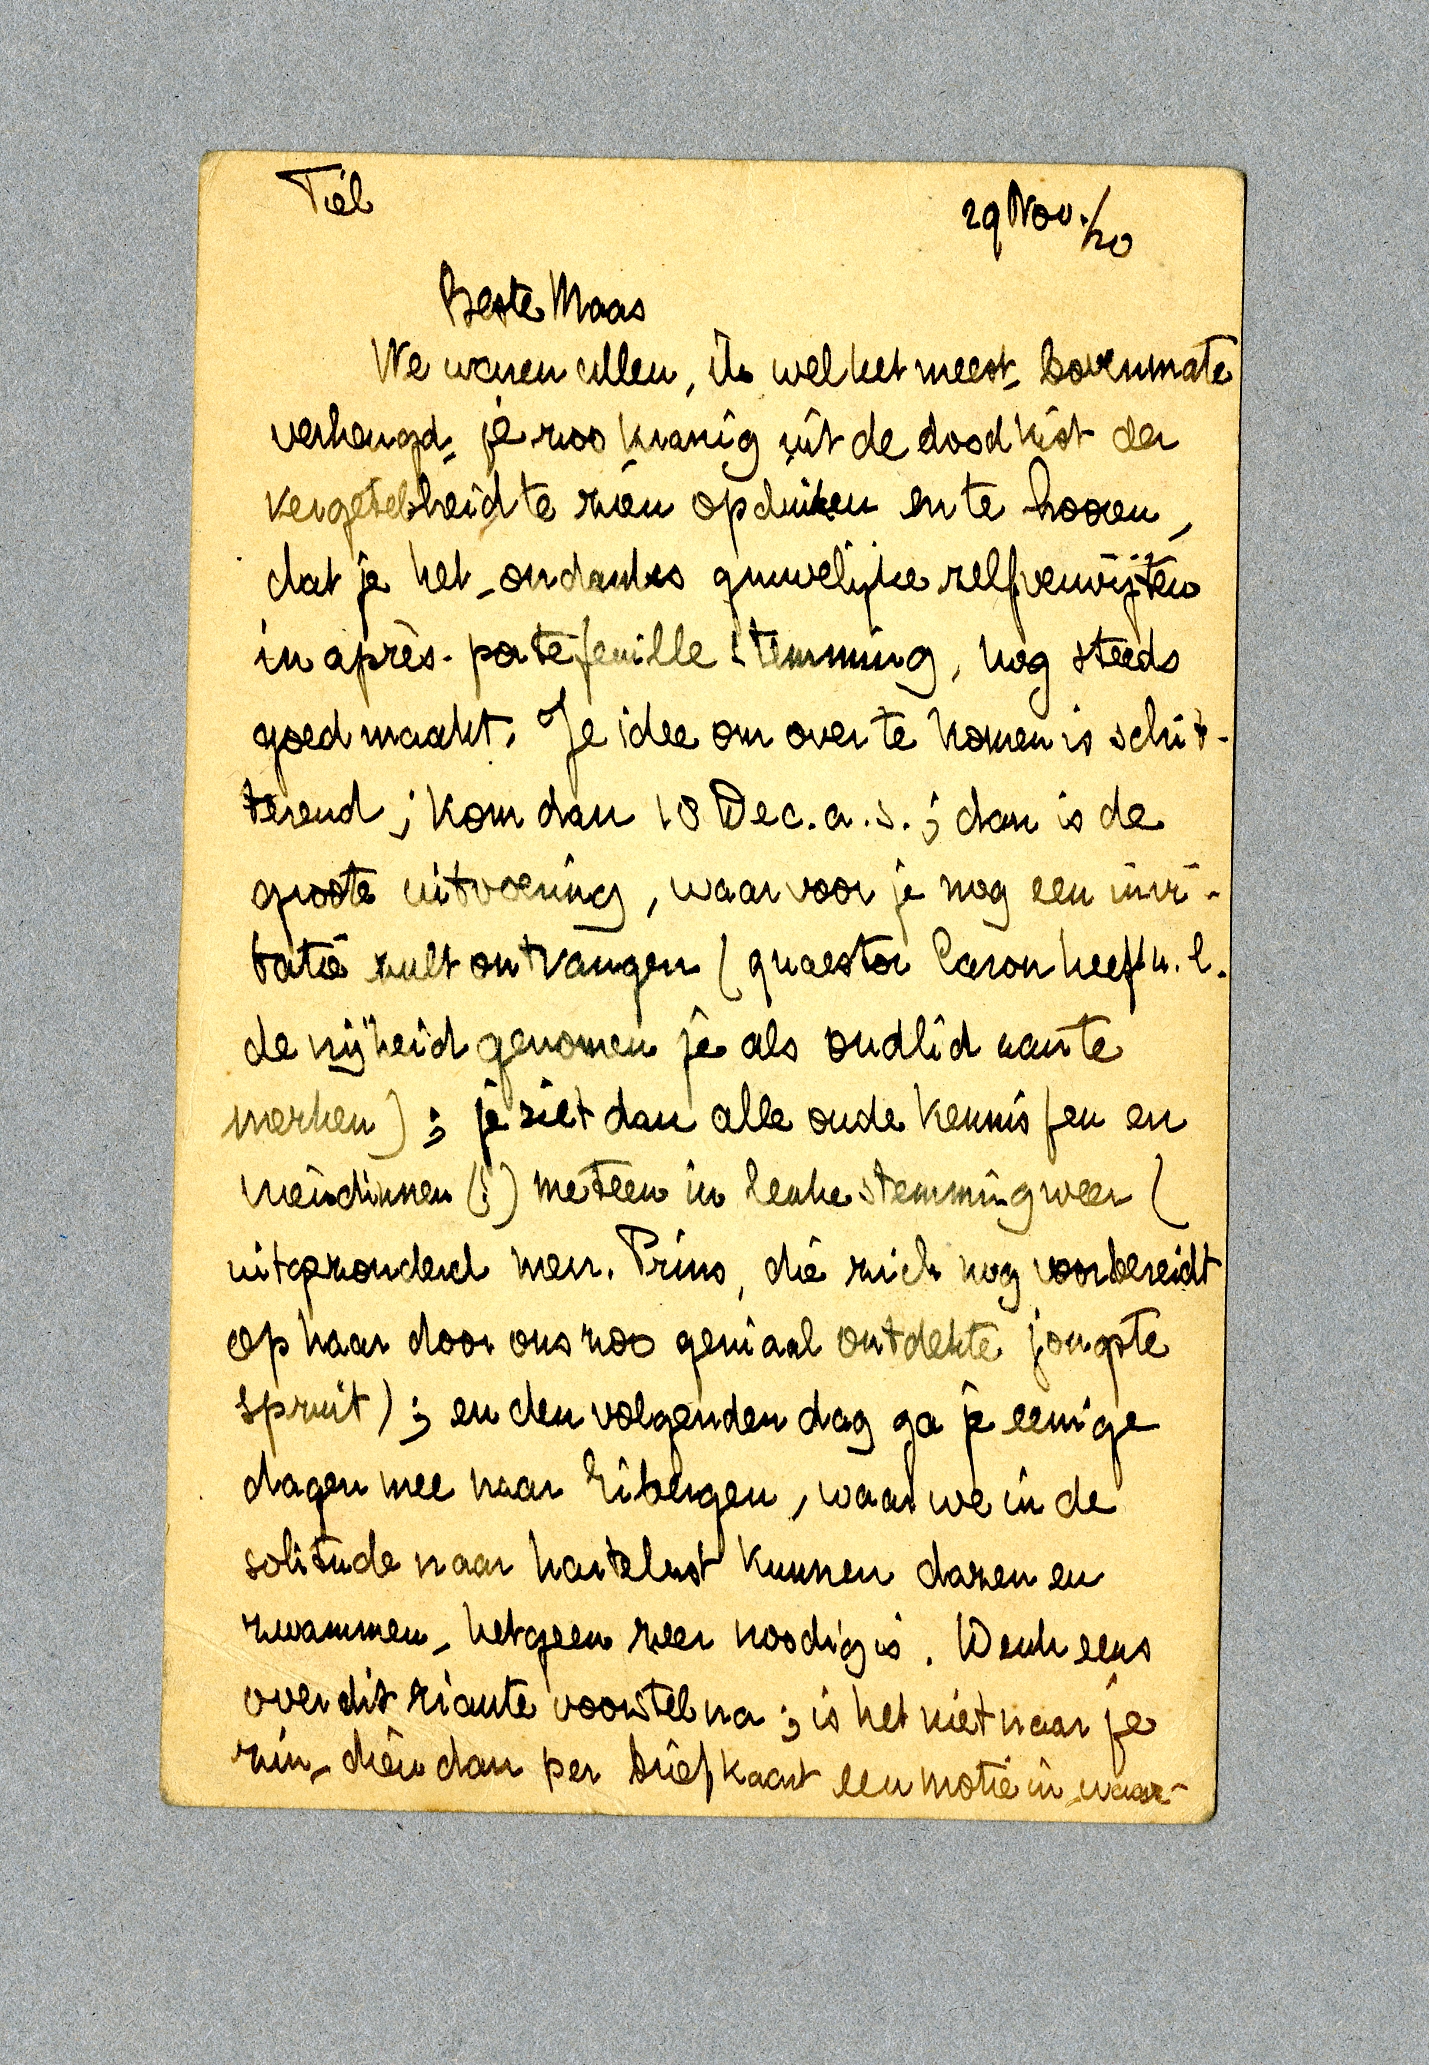 Tiel
29 Nov./20
Beste Maas
We waren allen, ik wel het meest, bovenmate
verheugd, je zoo kranig uit de doodkist der
vergetelheid te zien opduiken en te hooren,
dat je het, ondanks gruwelijke zelfverwijten
in après-portefeuille stemming, nog steeds
goed maakt. Je idee om over te komen is schit-
terend; kom dan 18 Dec. a.s.; dan is de
groote uitvoering, waarvoor je nog een invi-
tatie zult ontvangen (quaestor Caron heeft n.l.
de vrijheid genomen je als oudlid aan te
merken); je ziet dan alle oude kennissen en
vriendinnen (!) meteen in leuke stemming weer (
uitgezonderd mevr. Prins, die zich nog voorbereidt
op haar door ons zoo geniaal ontdekte jongste
spruit); en den volgenden dag ga je eenige
dagen mee naar Eibergen, waar we in de
solitude naar hartelust kunnen dazen en
zwammen, hetgeen zeer noodig is. Denk eens
over dit riante voorstel na; is het niet naar je
zin, dien dan per briefkaart een motie in, waar-